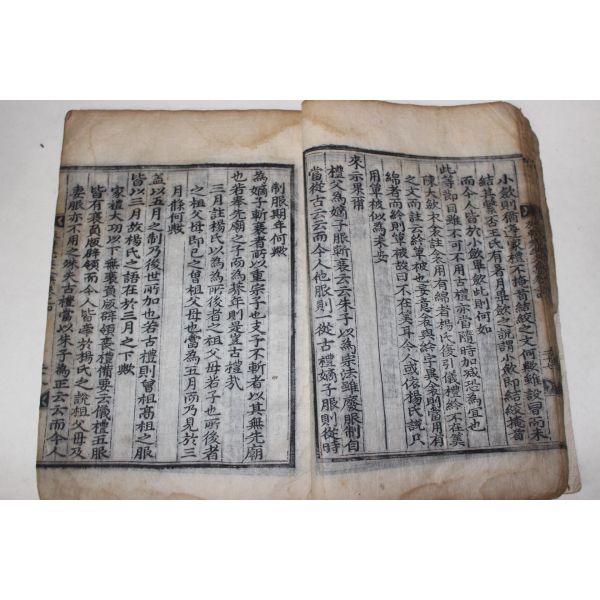 小斂則備要家禮不掩首結絞之文何歟雖設冒而未
結其斂丕王氏有暑月畢斂之說謂小斂即結絞掩首
而今人皆於小斂畢斂此則何如
此等節目雖不可不用古禮亦當隨時加減恐爲宜也
陳大斂衣衾註衾用有綿者楊氏復引儀禮紟不在筭
之文而註云紟單被也妄意衾與紟字異衾則當用有
綿者而紟則單被故曰不在筭耳今人或依楊氏說只
用單被似爲未安
來示果甫
禮父爲嫡子服斬衰云云朱子以爲宗法雖廢服制自
當從古云云而今人他服則一從古禮嫡子服則從時
制服期年何歟
爲嫡子斬衰者所以重宗子也支子不斬者以其無先廟
也若奉先廟之子而爲朞年則是豈古禮哉
三月註楊氏以爲爲所後者之祖父母若子也所後者
之祖父母即己之曾祖父母也當爲五月而乃見於三
月條何歟
蓋以五月之制乃後世所加也若古禮則曾祖高祖之服
皆以三月故楊氏之語在於三月之下歟
家禮大功以下無衰負版辟領喪禮備要云儀禮五服
皆有衰負版辟領而今人皆牽於楊氏之說祖父母及
妻服亦不用之殊失古禮當以朱子爲正云云而今人